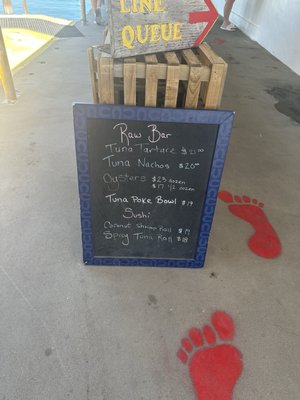 LINE
QUEUE
Raw Bar
Tuna Tartare $21.00
Tuna Nachos $20.00
Oysters $23 dozen
$17 1/2 dozen
Tuna Poke Bowl $19
Sushi
Coconut Shrimp Roll $19
Spicy Tuna Roll $18